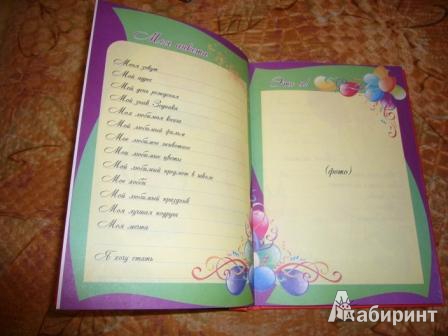 Моя анкета
Меня зовут
Мой адрес
Мой день рождения
Мой знак Зодиака
Моя любимая книга
Мой любимый фильм
Мое любимое животное
Мои любимые цветы
Мой любимый предмет в школе
Мое хобби
Мой любимый праздник
Моя лучшая подруга
Моя мечта
Я хочу стать
Это я!
(фото)
Лабиринт